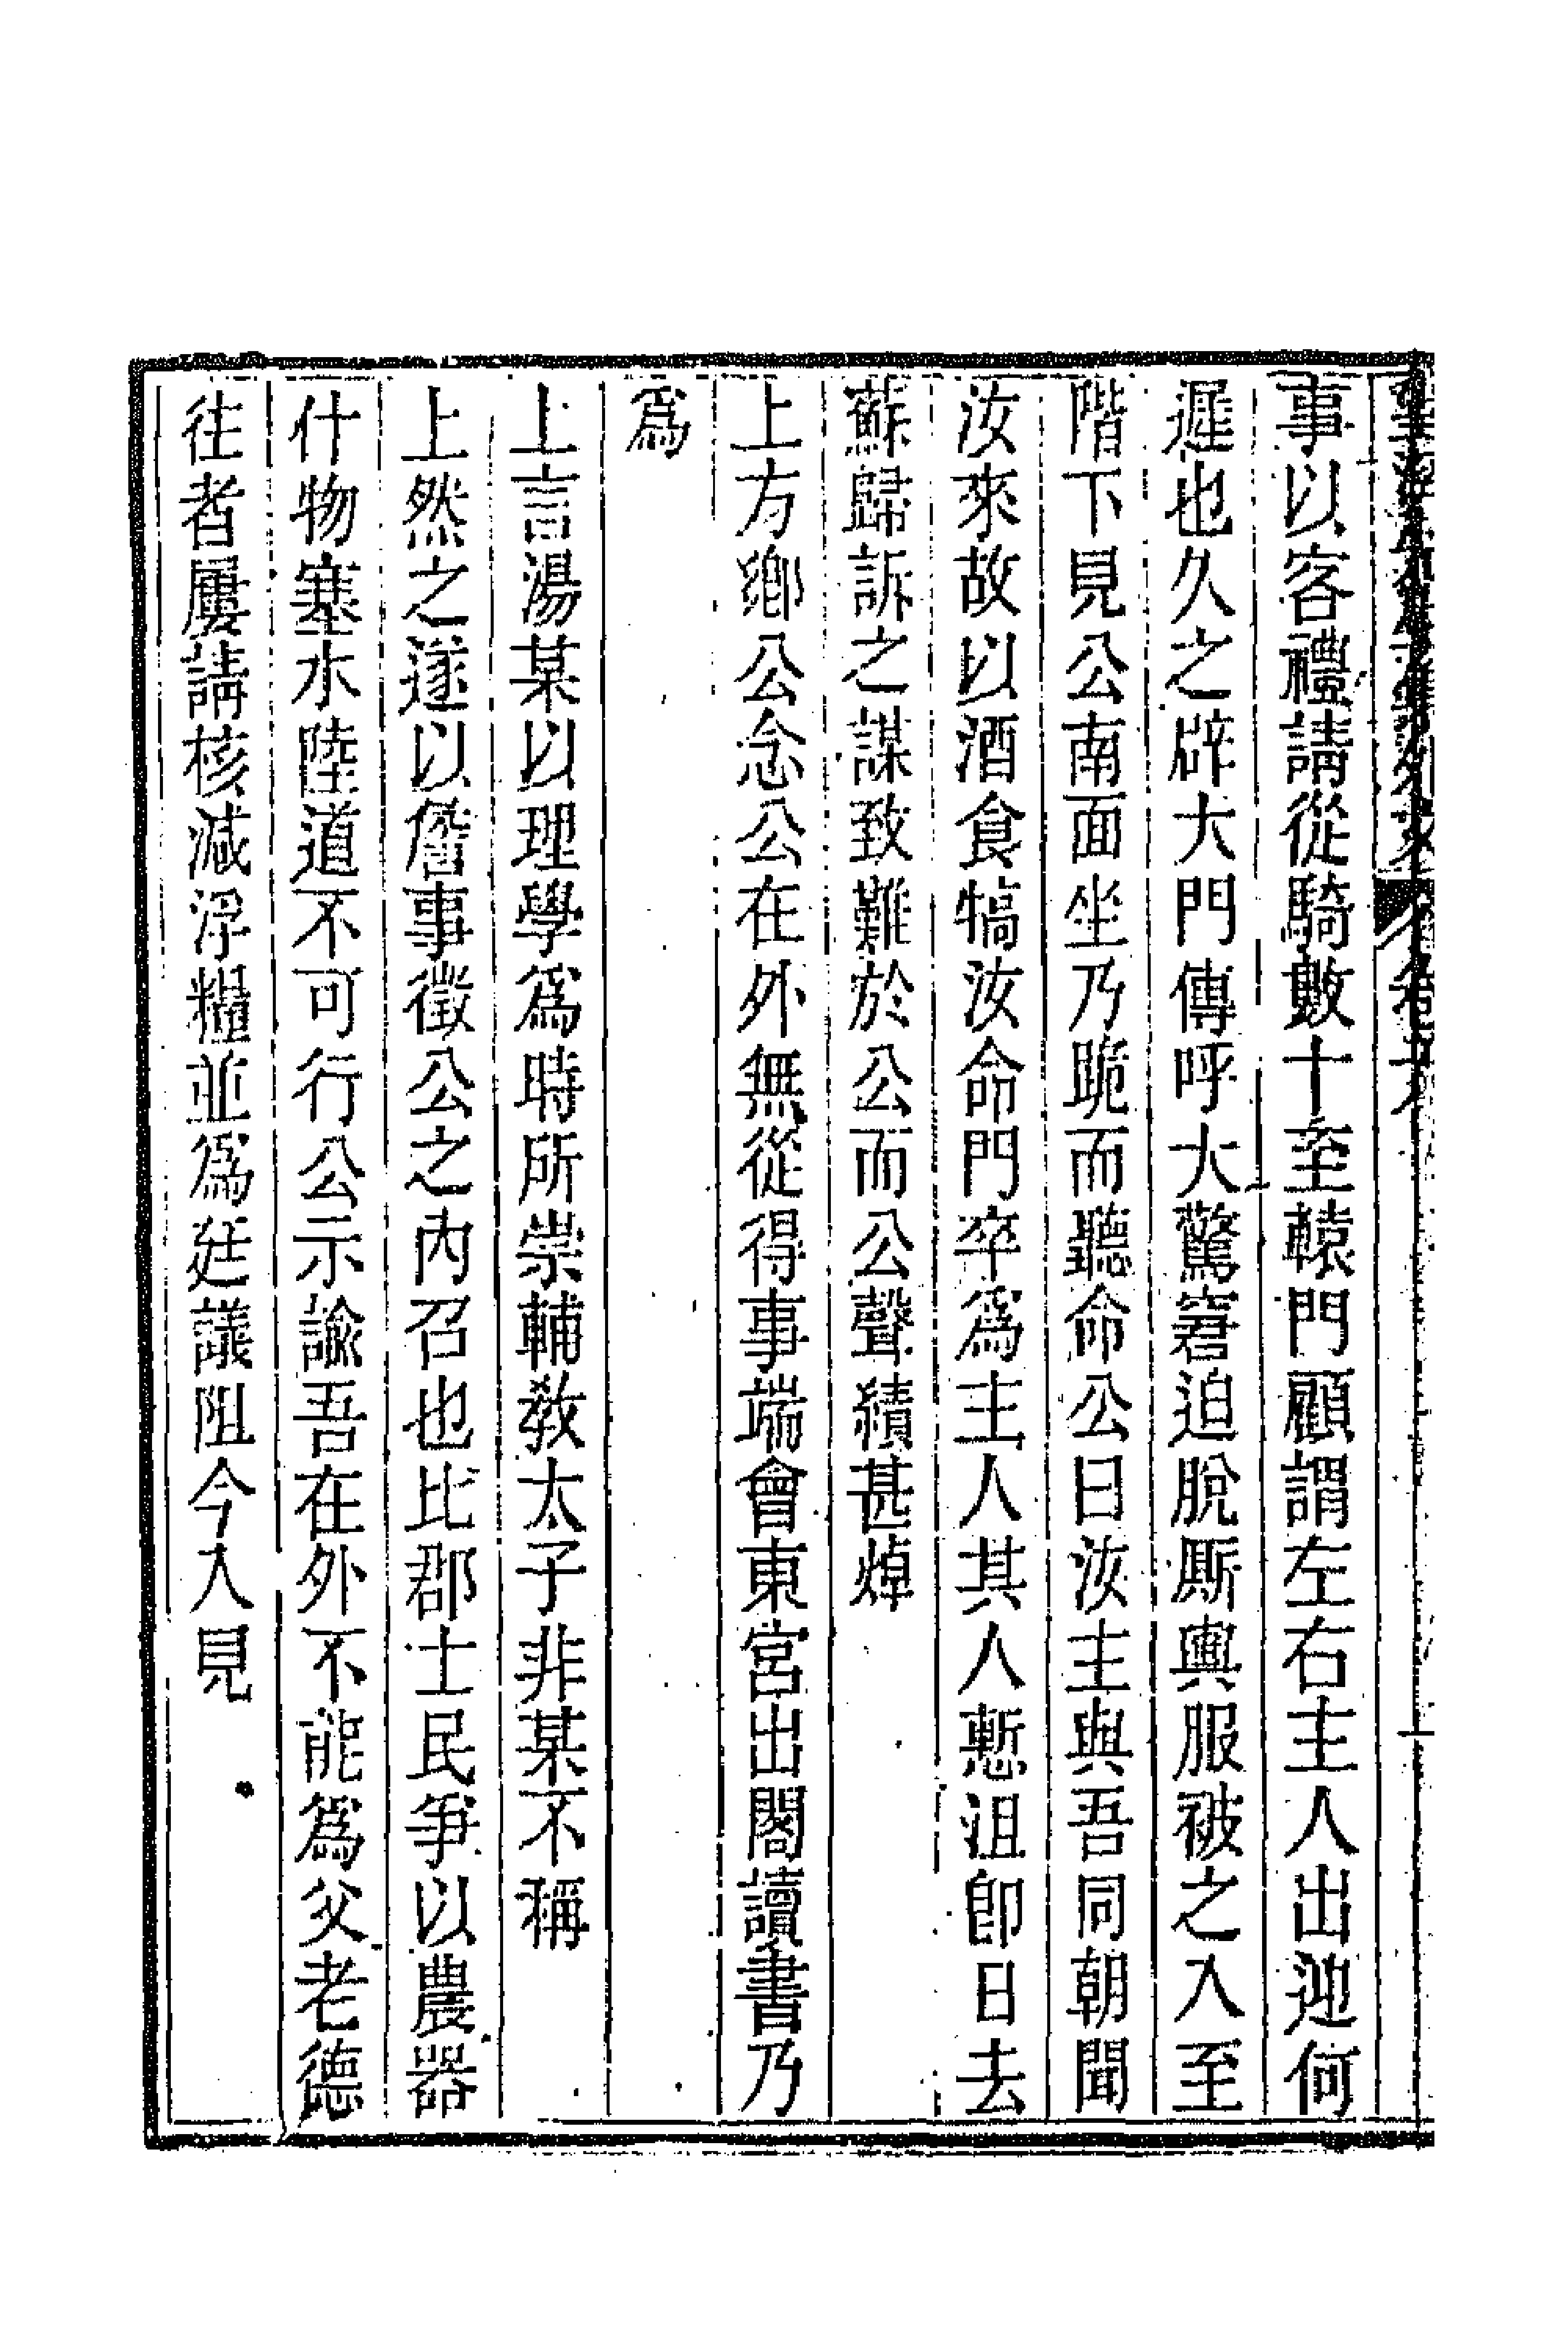 事以客禮請從騎數十至轅門顧謂左右主人出迎何
遲也久之辟大門傳呼大驚窘迫脫厮輿服被之入至
階下見公南面坐乃跪而聽命公曰汝主與吾同朝聞
汝來故以酒食犒汝命門卒爲主人其人慙沮卽日去
蘇歸訴之謀致難於公而公聲績甚焯
上方鄉公念公在外無從得事端會東宮出閣讀書乃
爲
上言湯某以理學爲時所崇輔教太子非某不稱
上然之遂以詹事徵公之內召也比郡士民爭以農器
什物塞水陸道不可行公示諭吾在外不能爲父老德
往者屢請核減浮糧並爲廷議阻今入見